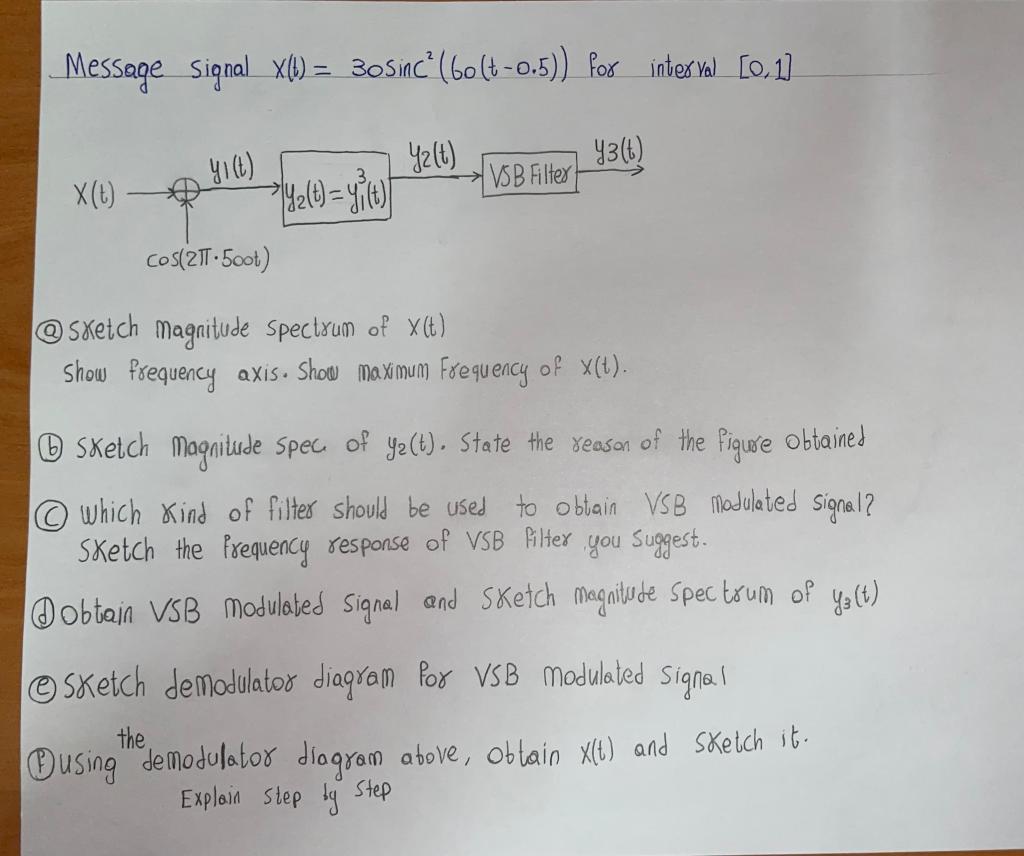 Message signal x(t) = 30sinc²(60(t-0.5)) for interval [0,1]
y1(t)
y2(t)
y3(t)
x(t)
y2(t) = y1³(t)
VSB Filter
cos(2π·500t)
ⓐ Sketch magnitude spectrum of x(t)
Show frequency axis. Show maximum Frequency of x(t).
ⓑ Sketch Magnitude spec. of y2(t). State the reason of the figure obtained
ⓒ Which kind of filter should be used to obtain VSB modulated signal?
Sketch the frequency response of VSB filter you suggest.
ⓓ Obtain VSB modulated signal and sketch magnitude spectrum of y3(t)
ⓔ Sketch demodulator diagram for VSB modulated signal
ⓕ using the demodulator diagram above, obtain x(t) and sketch it.
Explain step by step